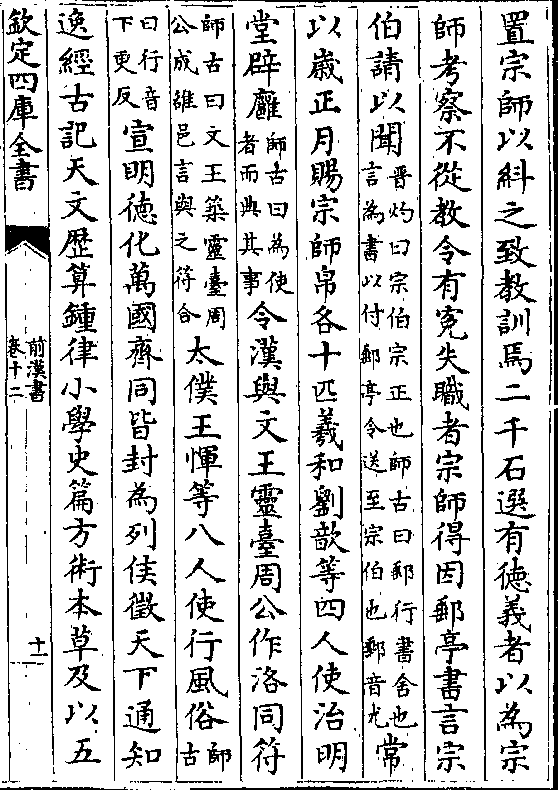 置宗師以糾之致教訓焉二千石選有徳義者以為宗
師考察不從教令有寃失職者宗師得因郵亭書言宗
伯請以聞晋灼曰宗伯宗正也師古曰郵行書舍也言為書以付郵亭令送至宗伯也郵音尤常
以歲正月賜宗師帛各十匹羲和劉歆等四人使治明
堂辟廱師古曰為使者而典其事令漢與文王靈臺周公作洛同符
師古曰文王築靈臺周公成雒邑言與之符合太僕王惲等八人使行風俗師古
曰行音下更反宣明徳化萬國齊同皆封為列侯徵天下通知
逸經古記天文歴算鍾律小學史篇方術本草及以五
欽定四庫全書
前漢書
卷十二
十一